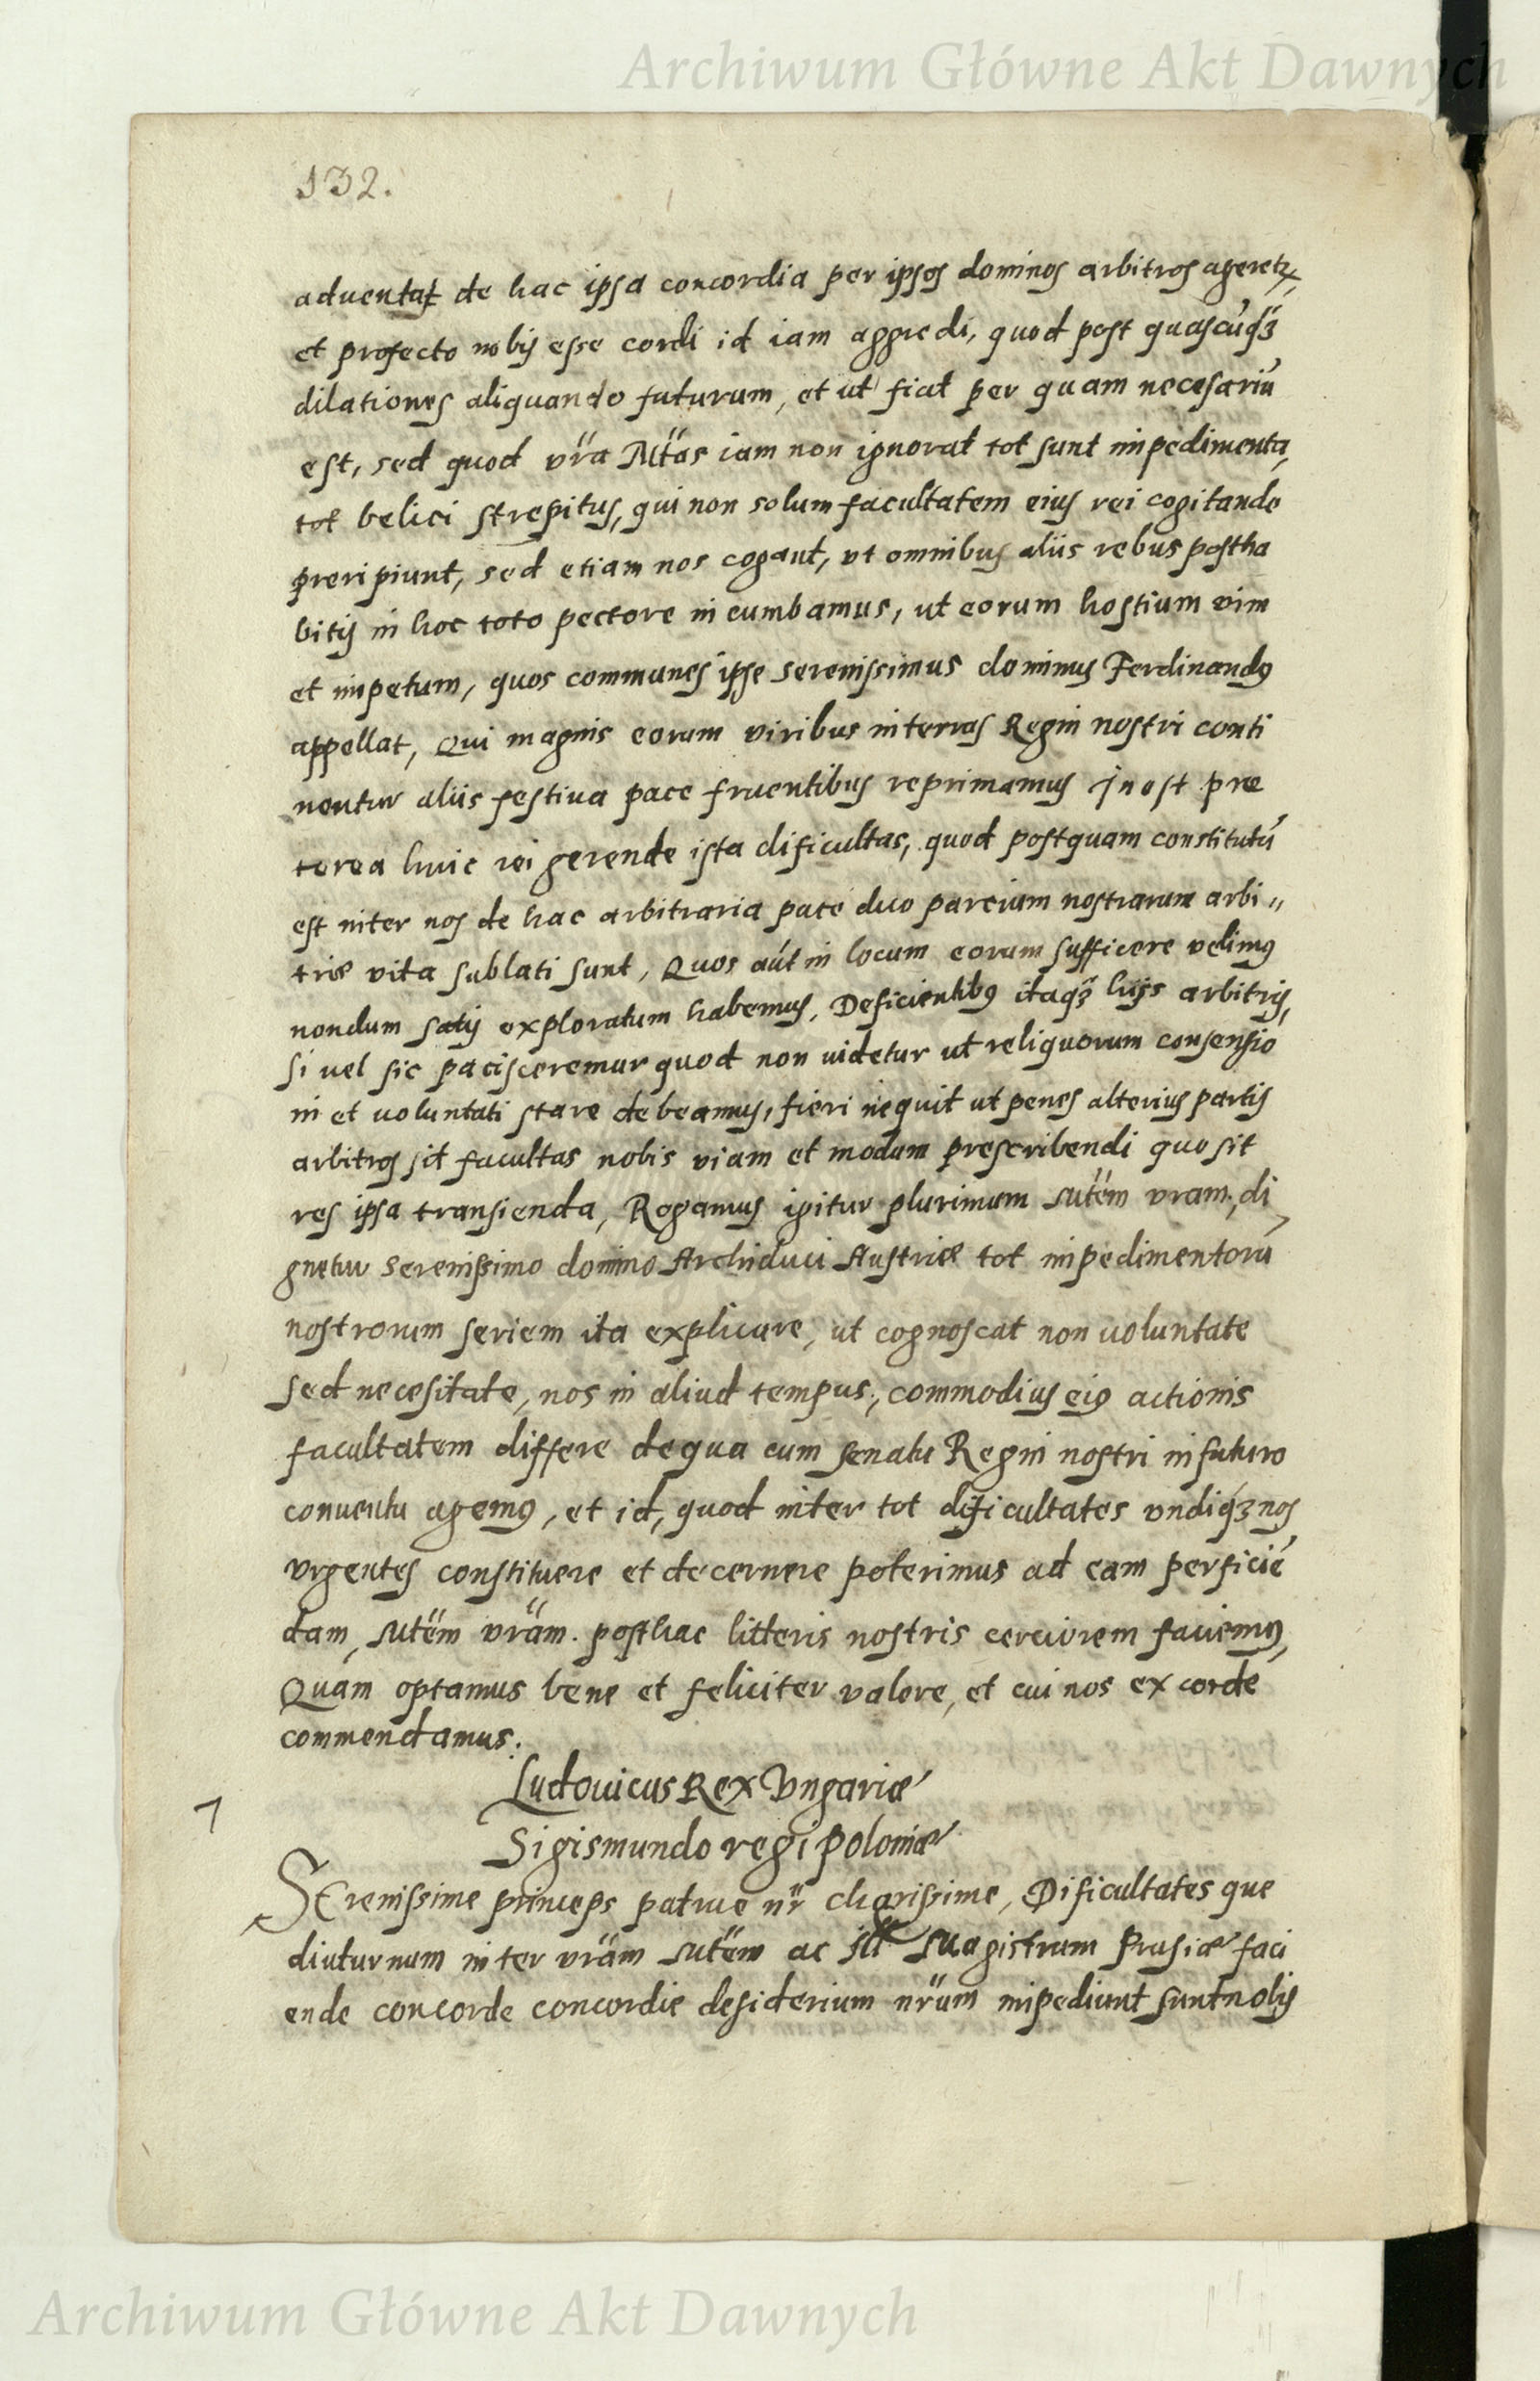 Archiwum Główne Akt Dawnych
132.
aduentat de hac ipsa concordia per ipsos dominos arbitros ageretur,
et profecto nobis esse cordi id iam aggredi, quod post quascūq̃ꝫ
dilationes aliquando futurum, et ut fiat per quam necesariū
est, sed quod vr̃a Mt̃as iam non ignorat tot sunt impedimenta,
tot belici strepitus, qui non solum facultatem eius rei cogitande
preripiunt, sed etiam nos cogant, vt omnibus aliis rebus postha
bitis in hoc toto pectore in cumbamus, ut eorum hostium vim
et impetum, quos communes ipse serenissimus dominus Ferdinandꝰ
appellat, Qui magnis eorum viribus in terras Regni nostri conti
nentur aliis festiua pace fruentibus reprimamus jnest pre
terea huic rei gerende ista dificultas, quod postquam constitutū
est inter nos de hac arbitraria pace duo parcium nostrarum arbi"
triæ vita sublati sunt, Quos aūt in locum eorum sufficere velimꝰ
nondum satis exploratum habemus, Deficientibꝰ itaq̃ꝫ hijs arbitris,
si vel sic pacisceremur quod non uidetur ut reliquorum consensio
ni et uoluntati stare debeamus, fieri nequit ut penes alterius partis
arbitros sit facultas nobis viam et modum prescribendi quo sit
res ipsa transienda, Rogamus igitur plurimum Mt̃em vram, di
gnetur serenissimo domino Archiduci Austriæ tot impedimentorū
nostrorum seriem ita explicare, ut cognoscat non uoluntate
sed necesitate, nos in aliud tempus, commodius eiꝰ actionis
facultatem differe de qua cum senatu Regni nostri in futuro
conuentu agemꝰ, et id, quod inter tot dificultates vndiq́ꝫ nos
vrgentes constituere et decernere poterimus ad eam perficiē
dam, Mt̃em vr̃am. posthac litteris nostris cerciorem faciemꝰ,
Quam optamus bene et feliciter valere, et cui nos ex corde
commendamus.
Ludouicus Rex Vngariæ
Sigismundo regi poloniæ
SErenissime princeps patrue nr̃ charissime, Dificultates que
diuturnum inter vr̃am Mt̃em ac Ill Magistrum Prusiæ faci
ende concorde concordie desiderium nr̃um impediunt sunt nobis
Archiwum Główne Akt Dawnych